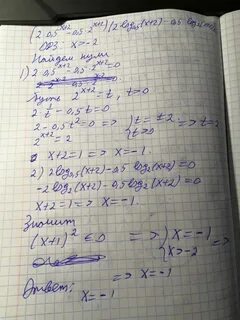 (2·0,5^(x+2) - 0,5·2^(x+2))(2log₀,₅(x+2) - 0,5log₂(x+2)) ≤ 0
ОДЗ x>-2
Найдем нули
1) 2·0,5^(x+2) - 0,5·2^(x+2) = 0
Пусть 2^(x+2) = t, t>0
2/t - 0,5t = 0
2 - 0,5t² = 0 => {t = ±2 => t=2
2^(x+2) = 2 t>0
x+2=1 => x=-1.
2) 2log₀,₅(x+2) - 0,5log₂(x+2) = 0
-2log₂(x+2) - 0,5log₂(x+2) = 0
x+2=1 => x=-1.
Значит
(x+1)² ≤ 0 => {x=-1
x>-2 =>
=> x=-1
Ответ:
x=-1